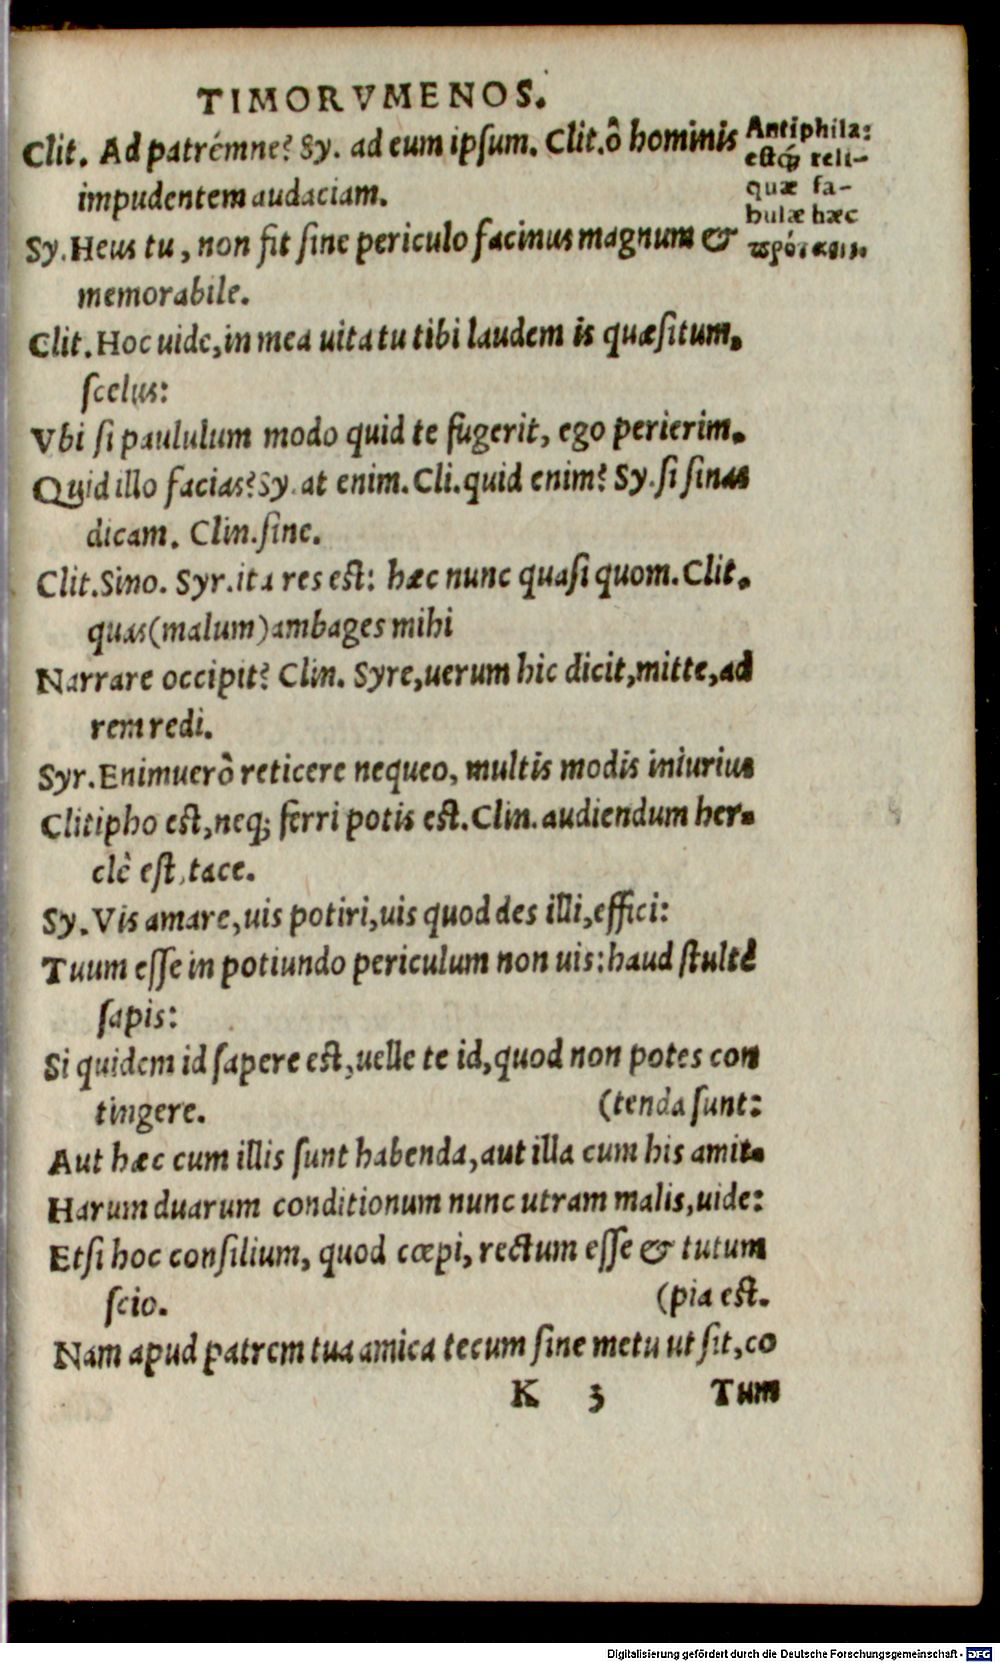 TIMORVMENOS.
Clit. Ad patrémne? Sy. ad eum ipſum. Clit. ô hominis
impudentem audaciam.
Sy. Heus tu, non fit ſine periculo facinus magnum &
memorabile.
Clit. Hoc uide, in mea uita tu tibi laudem is quæſitum,
ſcelus:
Vbi ſi paululum modo quid te fugerit, ego perierim.
Quid illo facias? Sy. at enim. Cli. quid enim? Sy. ſi ſinas
dicam. Clin. ſine.
Clit. Sino. Syr. ita res est: hæc nunc quaſi quom. Clit.
quas (malum) ambages mihi
Narrare occipit? Clin. Syre, uerum hic dicit, mitte, ad
rem redi.
Syr. Enimuerò reticere nequeo, multis modis iniurius
Clitipho est, neq; ferri potis est. Clin. audiendum her-
clè est, tace.
Sy. Vis amare, uis potiri, uis quod des illi, effici:
Tuum eſſe in potiundo periculum non uis: haud ſtultè
ſapis:
Si quidem id ſapere est, uelle te id, quod non potes con
tingere. (tenda ſunt:
Aut hæc cum illis ſunt habenda, aut illa cum his amit-
Harum duarum conditionum nunc utram malis, uide:
Etſi hoc conſilium, quod cœpi, rectum eſſe & tutum
ſcio. (pia est.
Nam apud patrem tua amica tecum ſine metu ut ſit, co
K 3 Tum
Antiphila:
estq́; reli-
quæ fa-
bulæ hæc
πρότασις.
Digitalisierung gefördert durch die Deutsche Forschungsgemeinschaft - DFG